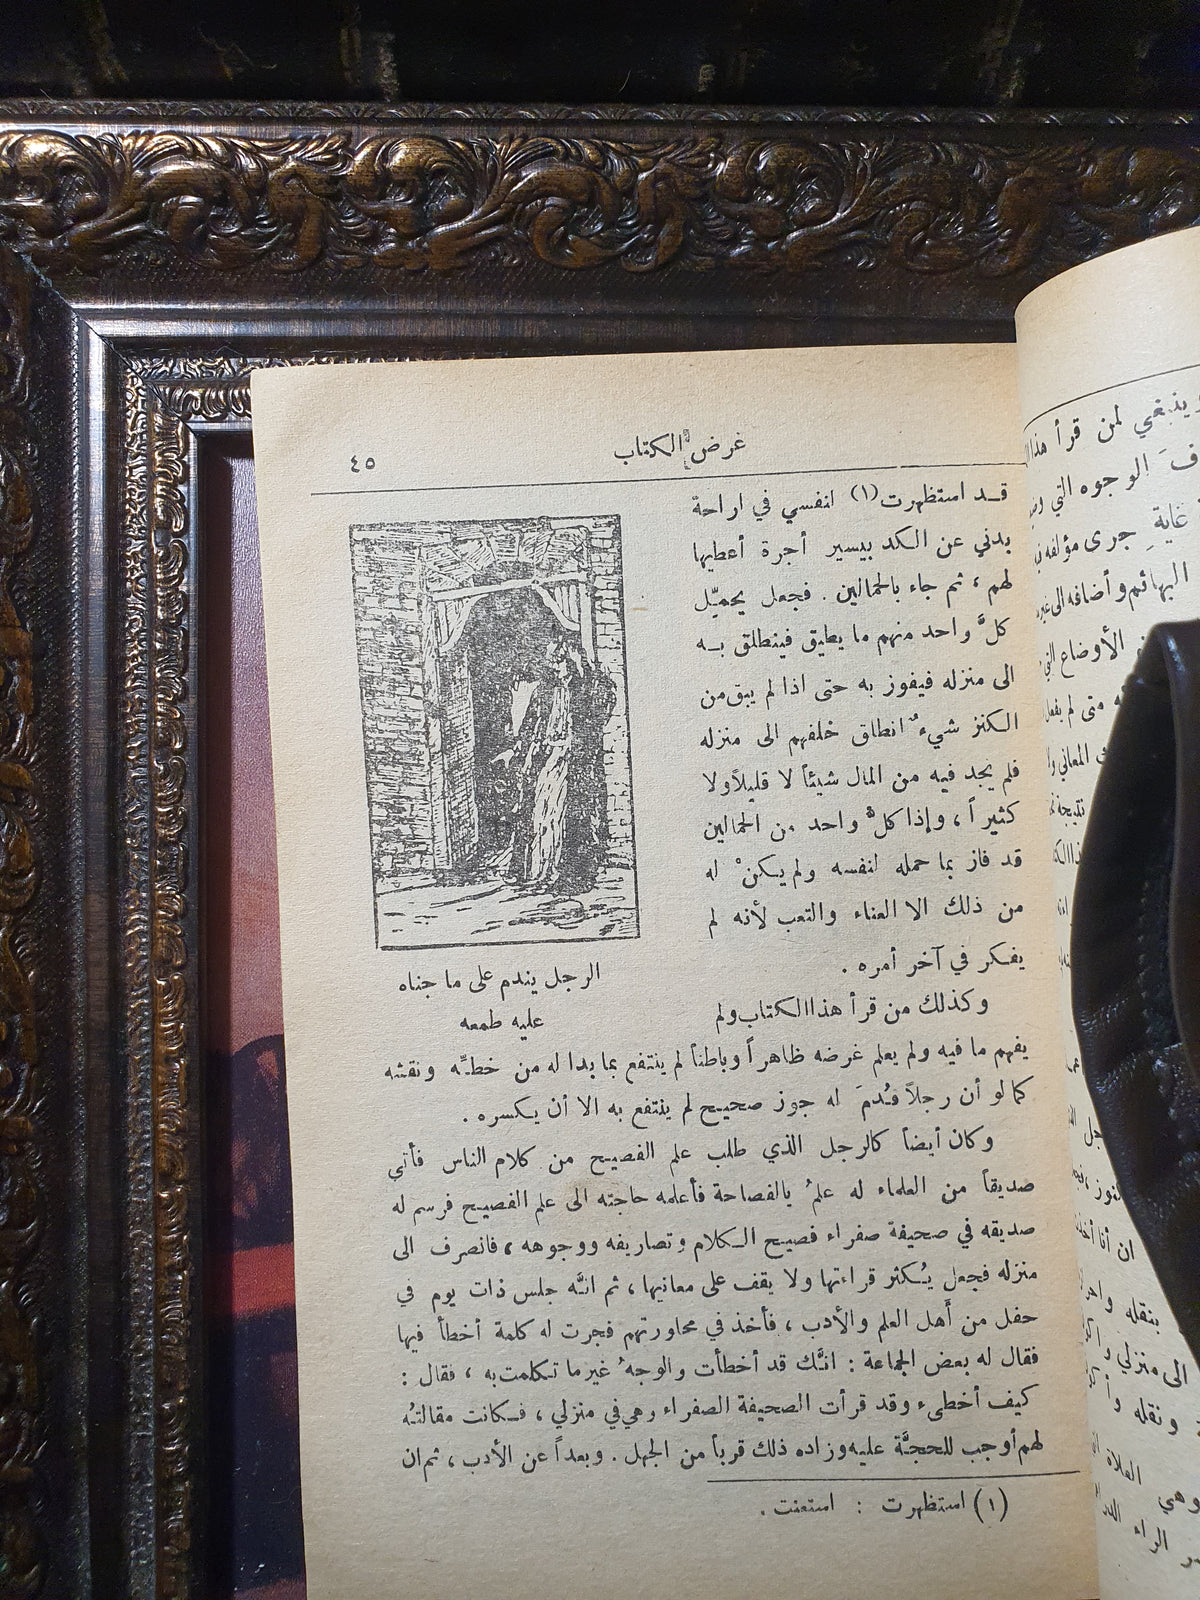 غرض الكتاب
٤٥
قد استظهرت (١) لنفسي في اراحة
بدني عن الكد بيسير أجرة أعطيها
لهم ، ثم جاء بالحمالين . فجعل يحمّل
كلَّ واحد منهم ما يطيق فينطلق به
الى منزله فيفوز به حتى اذا لم يبق من
الكنز شيءٌ انطلق خلفهم الى منزله
فلم يجد فيه من المال شيئاً لا قليلاً ولا
كثيراً ، وإذا كلُّ واحد من الحمالين
قد فاز بما حمله لنفسه ولم يكنْ له
من ذلك الا العناء والتعب لأنه لم
يفكر في آخر أمره .
الرجل يندم على ما جناه
عليه طمعه
وكذلك من قرأ هذا الكتاب ولم
يفهم ما فيه ولم يعلم غرضه ظاهراً وباطناً لم ينتفع بما بدا له من خطّه ونقشه
كما لو أن رجلاً قُدمَ له جوز صحيح لم ينتفع به الا أن يكسره .
وكان أيضاً كالرجل الذي طلب علم الفصيح من كلام الناس فأتى
صديقاً من العلماء له علمٌ بالفصاحة فأعلمه حاجته الى علم الفصيح فرسم له
صديقه في صحيفة صفراء فصيح الكلام وتصاريفه ووجوهه ، فانصرف الى
منزله فجعل يُكثر قراءتها ولا يقف على معانيها ، ثم انَّه جلس ذات يوم في
حفل من أهل العلم والأدب ، فأخذ في محاورتهم فجرت له كلمة أخطأ فيها
فقال له بعض الجماعة : انَّك قد أخطأت والوجهُ غير ما تكلمت به ، فقال :
كيف أخطىء وقد قرأت الصحيفة الصفراء وهي في منزلي ، فكانت مقالتهُ
لهم أوجب للحجَّة عليه وزاده ذلك قرباً من الجهل . وبعداً عن الأدب ، ثم ان
(١) استظهرت : استعنت .
ينبغي لمن قرأ هذا
الوجوه التي
غاية جرى مؤلفه
البهائم وأضافه الى غير
الأوضاع التي
متى لم يفعل
المعاني
ان أنا
بنقله
الى منزلي
ونقله
وهي العلاة
الراء